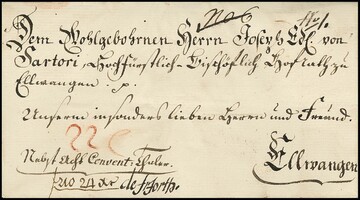 Dem Wohlgebohrnen Herrn Joseph Edl. von
Sartori, Hochfürstlich-Bischöflich Hofrath zu
Ellwangen. p.
Unserm insonders lieben Herrn und Freund.
Nebst Acht Convent: Thaler
Ellwangen